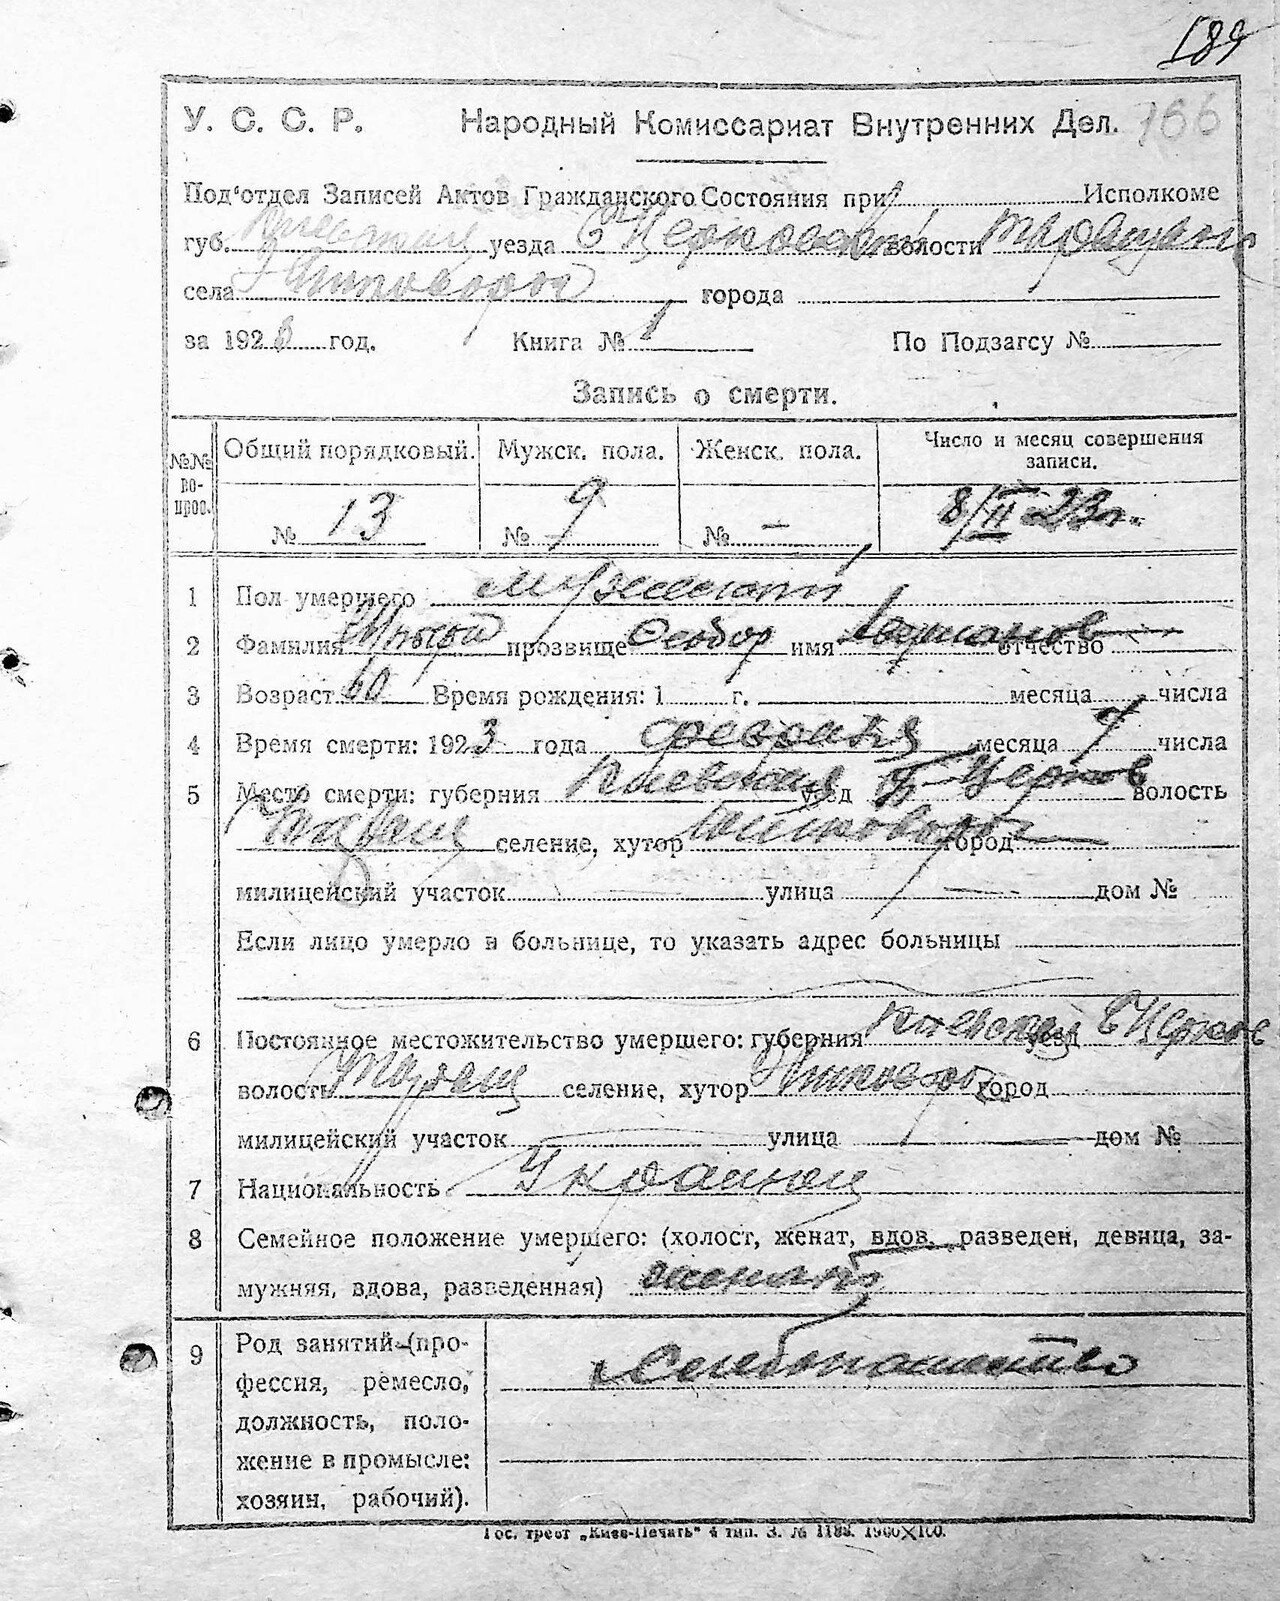 189
У. С. С. Р. Народный Комиссариат Внутренних Дел. 166
Под'отдел Записей Актов Гражданского Состояния при Исполкоме
губ. Киевской уезда Б Церковский волости Таращанс
села города
за 1923 год. Книга № 1 По Подзагсу №
Запись о смерти.
№№ вопрос. Общий порядковый. Мужск. пола. Женск. пола. Число и месяц совершения записи.
№ 13 № 9 № – 8/II 23г.
1 Пол умершего мужской
2 Фамилия прозвище Феодор имя отчество
3 Возраст 60 Время рождения: 1 г. месяца числа
4 Время смерти: 1923 года февраля месяца 7 числа
5 Место смерти: губерния Киевская уезд Б Церков волость
Таращ селение, хутор город
милицейский участок улица — дом №
Если лицо умерло в больнице, то указать адрес больницы
6 Постоянное местожительство умершего: губерния Киевская уезд Б Церков
волость Таращ селение, хутор город
милицейский участок улица — дом №
7 Национальность Украинец
8 Семейное положение умершего: (холост, женат, вдов, разведен, девица, за-
мужняя, вдова, разведенная) женат
9 Род занятий (про-
фессия, ремесло, Хлебопашество
должность, поло-
жение в промысле:
хозяин, рабочий).
Гос. трест „Киев-Печать" 4 тип. З. №